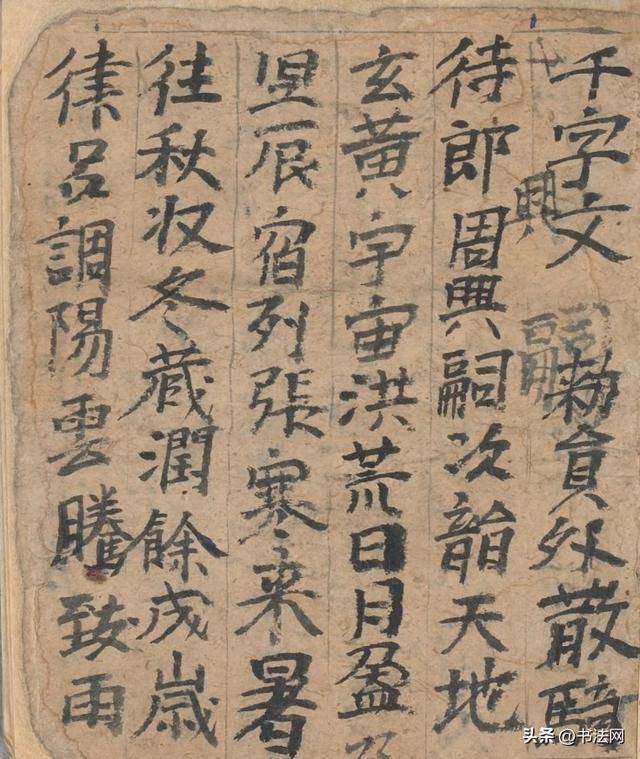 千字文勑員外散騎
興
嗣
待郎周興嗣次韻天地
玄黃宇宙洪荒日月盈
昃辰宿列張寒来暑
往秋收冬藏潤餘成歲
律呂調陽雲騰致雨
头条 @书法网